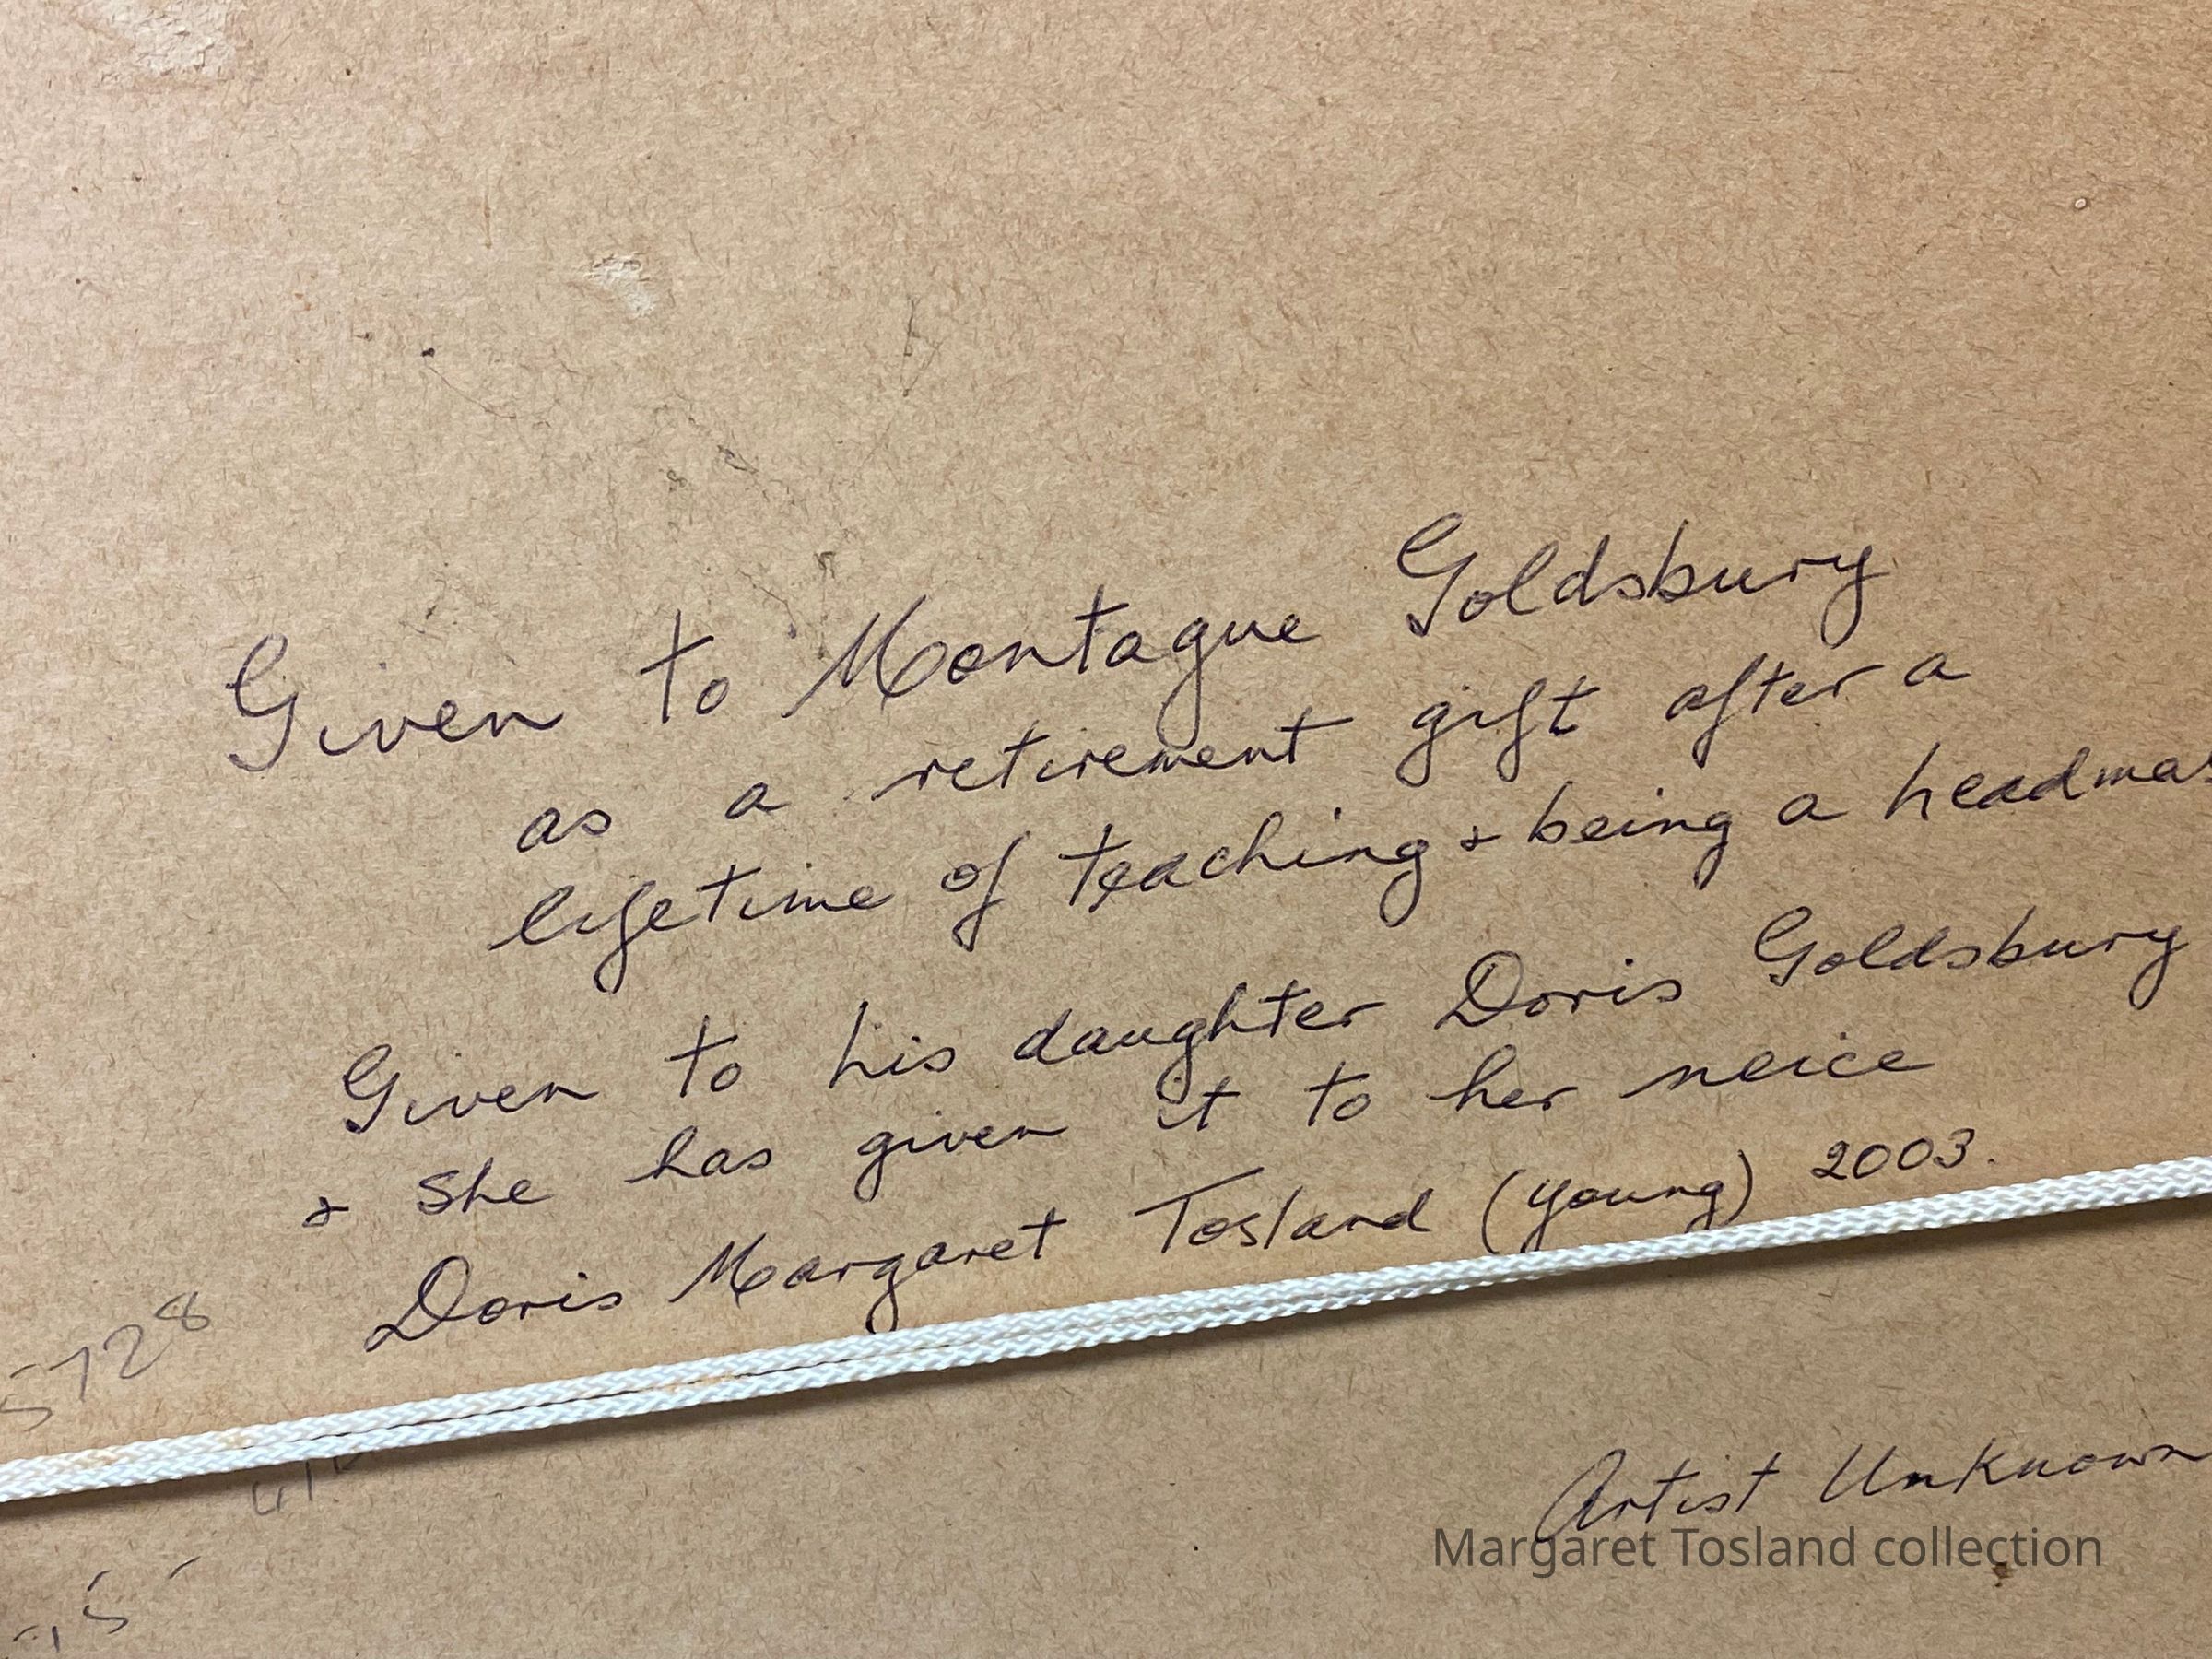 Given to Montague Goldsbury
as a retirement gift after a
lifetime of teaching & being a headmas
Given to his daughter Doris Goldsbury
& She has given it to her neice
Doris Margaret Tosland (Young) 2003.
5728
Artist Unknown
Margaret Tosland collection